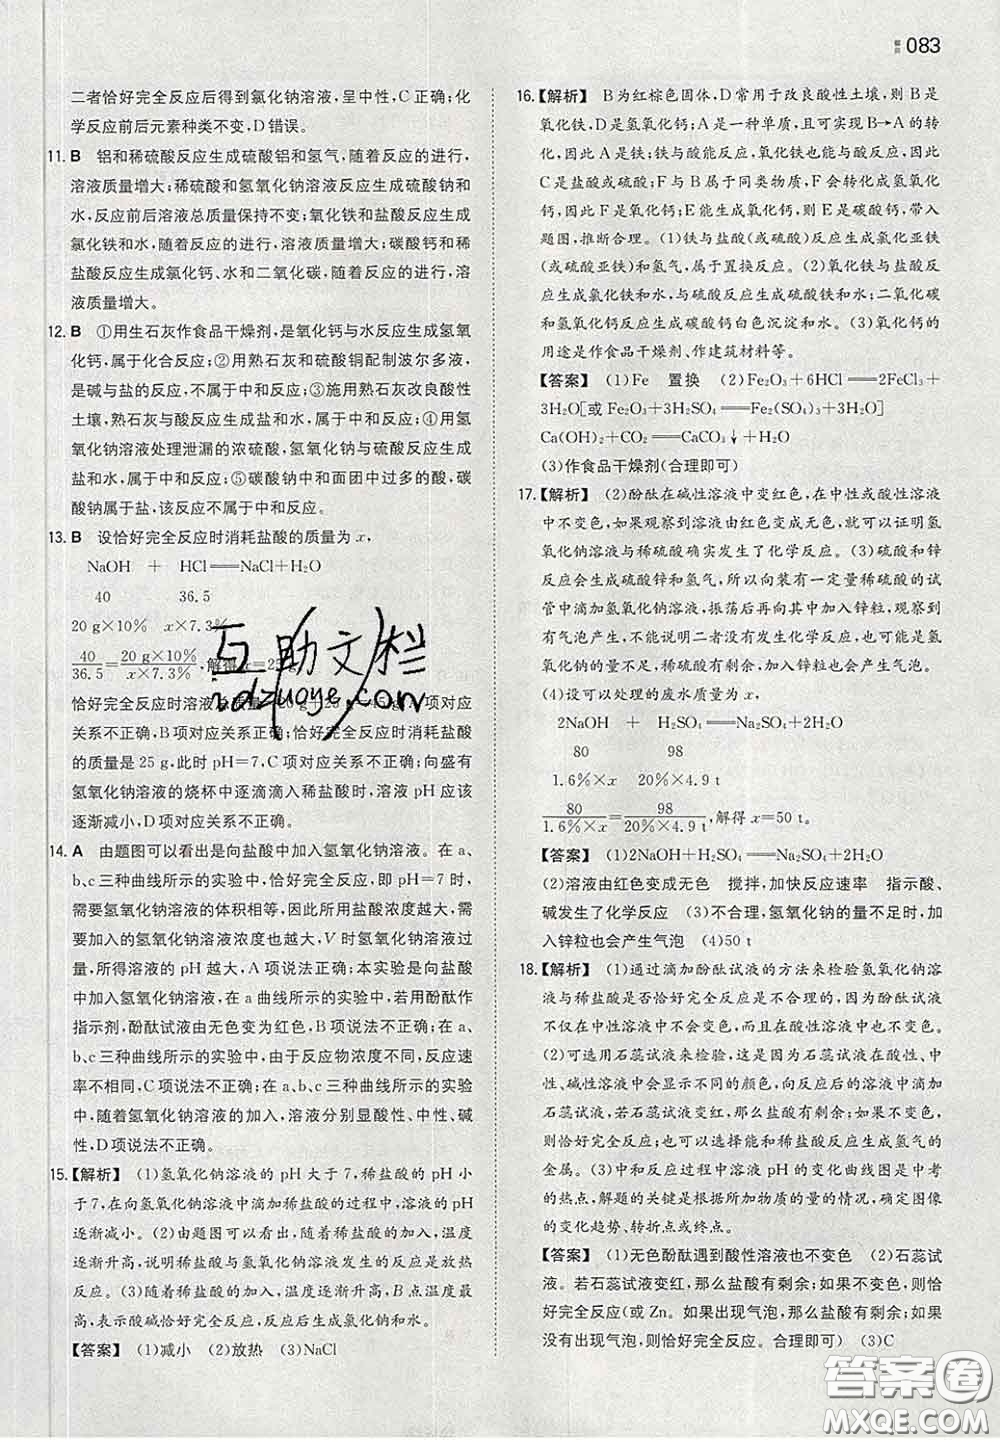 解析083
二者恰好完全反应后得到氯化钠溶液,呈中性,C正确;化
学反应前后元素种类不变,D错误。
11. B 铝和稀硫酸反应生成硫酸铝和氢气,随着反应的进行,
溶液质量增大;稀硫酸和氢氧化钠溶液反应生成硫酸钠和
水,反应前后溶液总质量保持不变;氧化铁和盐酸反应生成
氯化铁和水,随着反应的进行,溶液质量增大;碳酸钙和稀
盐酸反应生成氯化钙、水和二氧化碳,随着反应的进行,溶
液质量增大。
12. B ①用生石灰作食品干燥剂,是氧化钙与水反应生成氢氧
化钙,属于化合反应;②用熟石灰和硫酸铜配制波尔多液,
是碱与盐的反应,不属于中和反应;③施用熟石灰改良酸性
土壤,熟石灰与酸反应生成盐和水,属于中和反应;④用氢
氧化钠溶液处理泄漏的浓硫酸,氢氧化钠与硫酸反应生成
盐和水,属于中和反应;⑤碳酸钠中和面团中过多的酸,碳
酸钠属于盐,该反应不属于中和反应。
13. B 设恰好完全反应时消耗盐酸的质量为 x,
NaOH + HCl══NaCl+H₂O
40 36.5
20 g×10% x×7.3%
40/36.5=20 g×10%/x×7.3%,解得 x=25 g。
恰好完全反应时溶液总质量=20 g+25 g=45 g,A 项对应
关系不正确,B 项对应关系正确;恰好完全反应时消耗盐酸
的质量是 25 g,此时 pH=7,C 项对应关系不正确;向盛有
氢氧化钠的烧杯中逐滴滴入稀盐酸时,溶液 pH 应该
逐渐减小,D 项对应关系不正确。
14. A 由题图可以看出是向盐酸中加入氢氧化钠溶液。在 a、
b、c 三种曲线所示的实验中,恰好完全反应,即 pH=7 时,
需要氢氧化钠溶液的体积相等,因此所用盐酸浓度越大,需
要加入的氢氧化钠溶液浓度也越大,V 时氢氧化钠溶液过
量,所得溶液的 pH 越大,A 项说法正确;本实验是向盐酸
中加入氢氧化钠溶液,在 a 曲线所示的实验中,若用酚酞作
指示剂,酚酞试液由无色变为红色,B 项说法不正确;在 a、
b、c 三种曲线所示的实验中,由于反应物浓度不同,反应速
率不同,C 项说法不正确;在 a、b、c 三种曲线所示的实验
中,随着氢氧化钠溶液的加入,溶液分别显酸性、中性、碱
性,D 项说法不正确。
15.【解析】 (1)氢氧化钠溶液的 pH 大于 7,稀盐酸的 pH 小
于 7,在向氢氧化钠溶液中滴加稀盐酸的过程中,溶液的 pH
逐渐减小。(2)由题图可以看出,随着稀盐酸的加入,温度
逐渐升高,说明稀盐酸与氢氧化钠溶液发生的反应是放热
反应。(3)随着稀盐酸的加入,温度逐渐升高,B 点温度最
高,表示酸碱恰好完全反应,反应后生成氯化钠和水。
【答案】 (1)减小 (2)放热 (3)NaCl
16.【解析】 B 为红棕色固体,D 常用于改良酸性土壤,则 B 是
氧化铁,D 是氢氧化钙;A 是一种单质,且可实现 B→A 的转
化,因此 A 是铁;铁与酸能反应,氧化铁也能与酸反应,因此
C 是盐酸或硫酸;F 与 B 属于同类物质,F 会转化成氢氧化
钙,因此 F 是氧化钙;E 能生成氧化钙,则 E 是碳酸钙,带入
题图,推断合理。(1)铁与盐酸(或硫酸)反应生成氯化亚铁
(或硫酸亚铁)和氢气,属于置换反应。(2)氧化铁与盐酸反
应生成氯化铁和水,与硫酸反应生成硫酸铁和水;二氧化碳
和氢氧化钙反应生成碳酸钙白色沉淀和水。(3)氧化钙的
用途是作食品干燥剂、作建筑材料等。
【答案】 (1)Fe 置换 (2)Fe₂O₃+6HCl══2FeCl₃+
3H₂O[或 Fe₂O₃+3H₂SO₄══Fe₂(SO₄)₃+3H₂O]
Ca(OH)₂+CO₂══CaCO₃↓+H₂O
(3)作食品干燥剂(合理即可)
17.【解析】 (2)酚酞在碱性溶液中变红色,在中性或酸性溶液
中不变色,如果观察到溶液由红色变成无色,就可以证明氢
氧化钠溶液与稀硫酸确实发生了化学反应。(3)硫酸和锌
反应会生成硫酸锌和氢气,所以向装有一定量稀硫酸的试
管中滴加氢氧化钠溶液,振荡后再向其中加入锌粒,观察到
有气泡产生,不能说明二者没有发生反应,因为加入氢氧化
钠的量不足,稀硫酸有剩余,加入锌粒也会产生气泡。
(4)设可以处理的废水质量为 x,
2NaOH + H₂SO₄══Na₂SO₄+2H₂O
80 98
1.6%×x 20%×4.9 t
80/1.6%×x=98/20%×4.9 t,解得 x=50 t。
【答案】 (1)2NaOH+H₂SO₄══Na₂SO₄+2H₂O
(2)溶液由红色变成无色 搅拌,加快反应速率 指示酸、
碱发生了化学反应 (3)不合理,氢氧化钠的量不足时,加
入锌粒也会产生气泡 (4)50 t
18.【解析】 (1)通过滴加酚酞试液的方法来检验氢氧化钠溶
液与稀盐酸是否恰好完全反应是不合理的,因为酚酞试液
不仅在中性溶液中不会变色,而且在酸性溶液中也不变色。
(2)可选用石蕊试液来检验,这是因为石蕊试液在酸性、中
性、碱性溶液中会显示不同的颜色,向反应后的溶液中滴加
石蕊试液,若石蕊试液变红,那么盐酸有剩余;如果不变色,
则恰好完全反应;也可以选择能和盐酸反应生成氢气的
金属。(3)中和反应过程中溶液 pH 的变化曲线图是中考
的热点,解题的关键是根据所加物质的量的情况,确定图像
的变化趋势、转折点或终点。
【答案】 (1)无色酚酞遇到酸性溶液也不变色 (2)石蕊试
液。若石蕊试液变红,那么盐酸有剩余;如果不变色,则恰
好完全反应(或 Zn。如果出现气泡,那么盐酸有剩余;如果
没有出现气泡,则恰好完全反应。合理即可) (3)C
互助文档
zdzuoye.com
答案圈
MXQE.COM